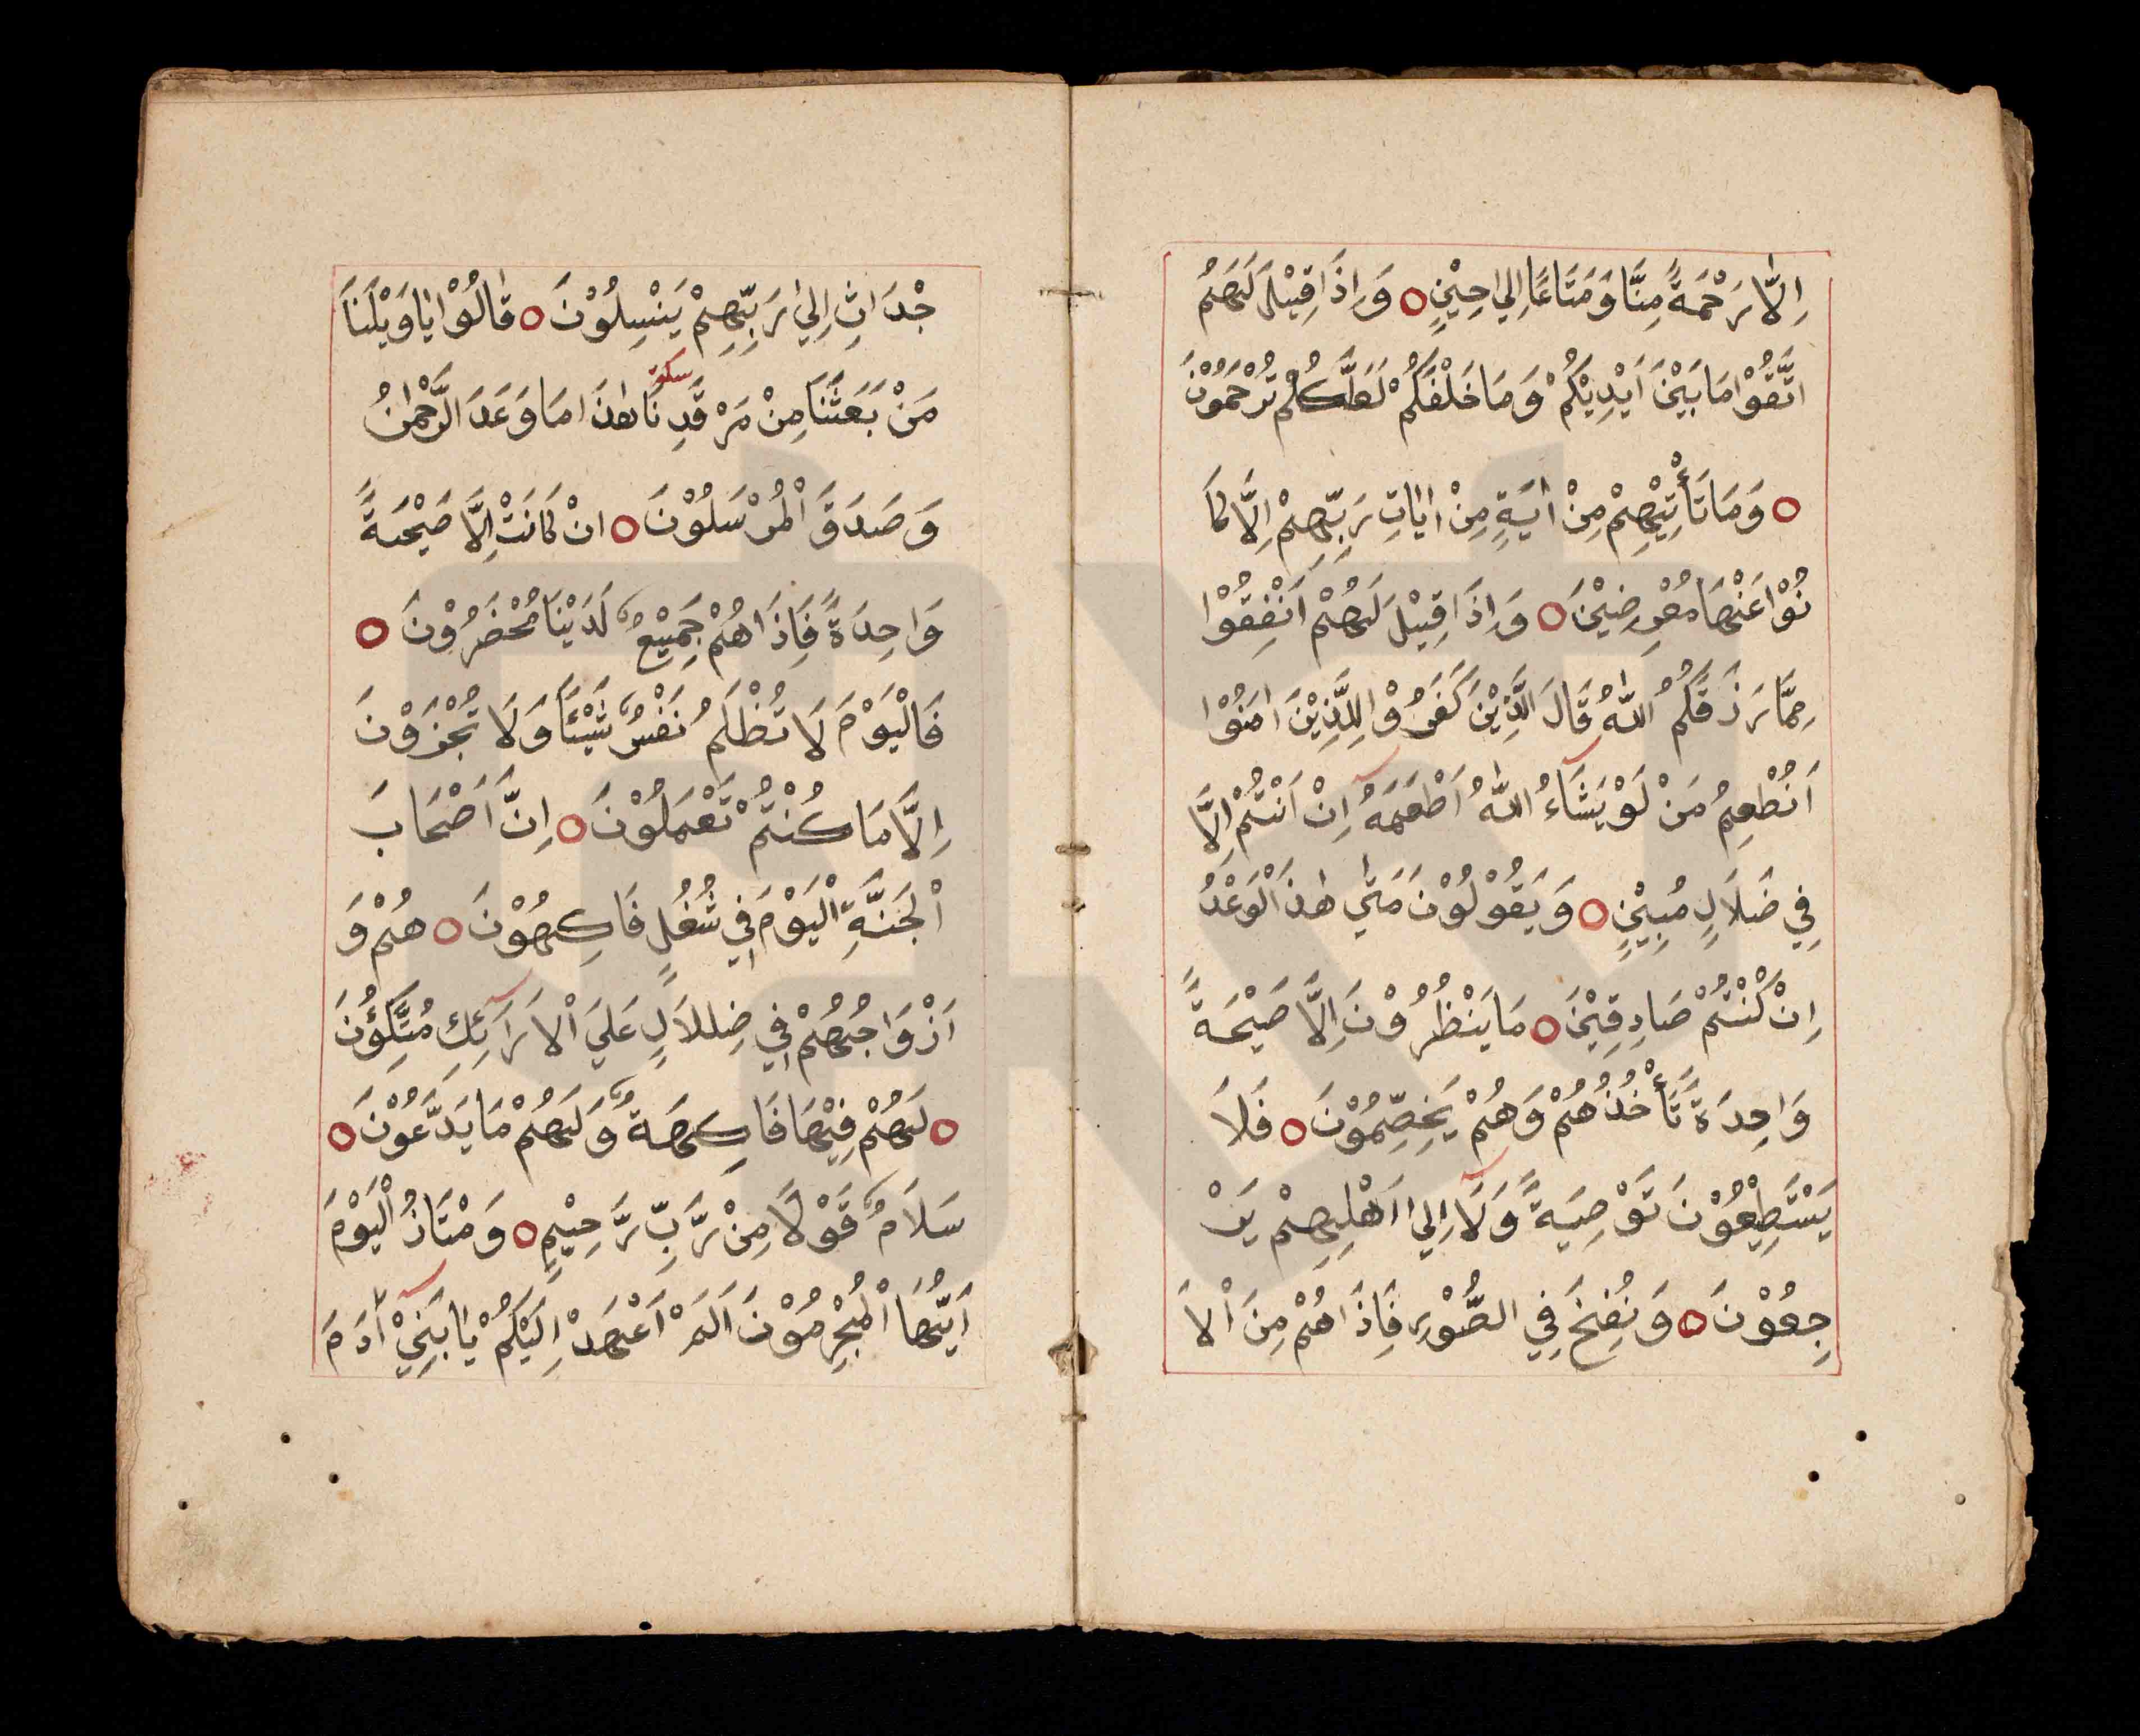 اِلَّا رَحْمَةً مِنَّا وَمَتَاعًا اِلٰي حِيْنٍ ○ وَاِذَا قِيْلَ لَهُمُ
اتَّقُوْا مَا بَيْنَ اَيْدِيْكُمْ وَمَا خَلْفَكُمْ لَعَلَّكُمْ تُرْحَمُوْنَ
○ وَمَا تَأْتِيْهِمْ مِنْ اٰيَةٍ مِنْ اٰيَاتِ رَبِّهِمْ اِلَّا كَا
نُوْا عَنْهَا مُعْرِضِيْنَ ○ وَاِذَا قِيْلَ لَهُمْ اَنْفِقُوْا
مِمَّا رَزَقَكُمُ اللّٰهُ قَالَ الَّذِيْنَ كَفَرُوْا لِلَّذِيْنَ اٰمَنُوْا
اَنُطْعِمُ مَنْ لَوْ يَشَاءُ اللّٰهُ اَطْعَمَهُ اِنْ اَنْتُمْ اِلَّا
فِي ضَلَالٍ مُبِيْنٍ ○ وَيَقُوْلُوْنَ مَتٰي هٰذَ الْوَعْدُ
اِنْ كُنْتُمْ صَادِقِيْنَ ○ مَا يَنْظُرُوْنَ اِلَّا صَيْحَةً
وَاحِدَةً تَأْخُذُهُمْ وَهُمْ يَخِصِّمُوْنَ ○ فَلَا
يَسْتَطِيْعُوْنَ تَوْصِيَةً وَلَا اِلٰي اَهْلِهِمْ يَرْ
جِعُوْنَ ○ وَنُفِخَ فِي الصُّوْرِ فَاِذَا هُمْ مِنَ الْاَ
جْدَاثِ اِلٰي رَبِّهِمْ يَنْسِلُوْنَ ○ قٰالُوْا يٰاوَيْلَنَا
مَنْ بَعَثَنَا مِنْ مَرْقَدِنَا سكتة هٰذَا مَا وَعَدَ الرَّحْمٰنُ
وَصَدَقَ الْمُرْسَلُوْنَ ○ اِنْ كَانَتْ اِلَّا صَيْحَةً
وَاحِدَةً فَاِذَا هُمْ جَمِيْعٌ لَدَيْنَا مُحْضَرُوْنَ ○
فَالْيَوْمَ لَا تُظْلَمُ نَفْسٌ شَيْئًا وَلَا تُجْزَوْنَ
اِلَّا مَا كُنْتُمْ تَعْمَلُوْنَ ○ اِنَّ اَصْحَابَ
الْجَنَّةِ الْيَوْمَ فِي شُغُلٍ فَاكِهُوْنَ ○ هُمْ وَ
اَزْوَاجُهُمْ فِي ضِللَالٍ عَلَي الْاَرَائِكِ مُتَّكِؤُنَ
○ لَهُمْ فِيْهَا فَاكِهَةٌ وَلَهُمْ مَا يَدَّعُوْنَ ○
سَلَامٌ قَوْلًا مِنْ رَّبٍّ رَّحِيْمٍ ○ وَمْتَازُ الْيَوْمَ
اَيُّهَا الْمُجْرِمُوْنَ اَلَمْ اَعْهَدْ اِلَيْكُمْ يٰابَنِيْ اٰدَمَ